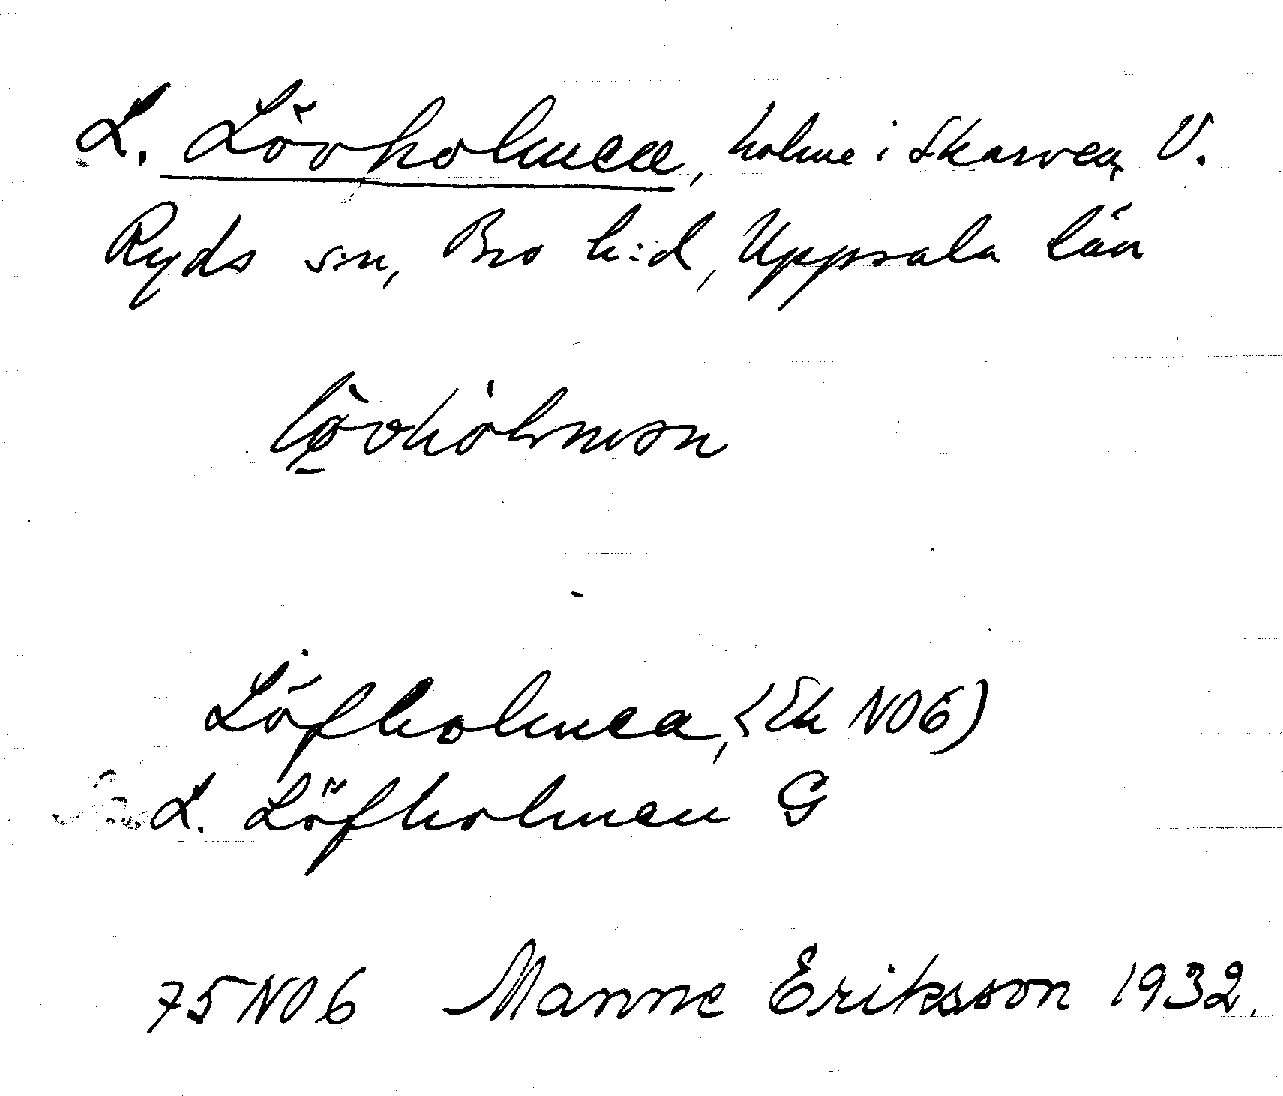 L. Lövholmen, holme i Skarven, V.
Ryds sn, Bro h:d, Uppsala län
Löfholmen, (Ek NO6)
L. Löfholmen G
75 NO 6 Manne Eriksson 1932.